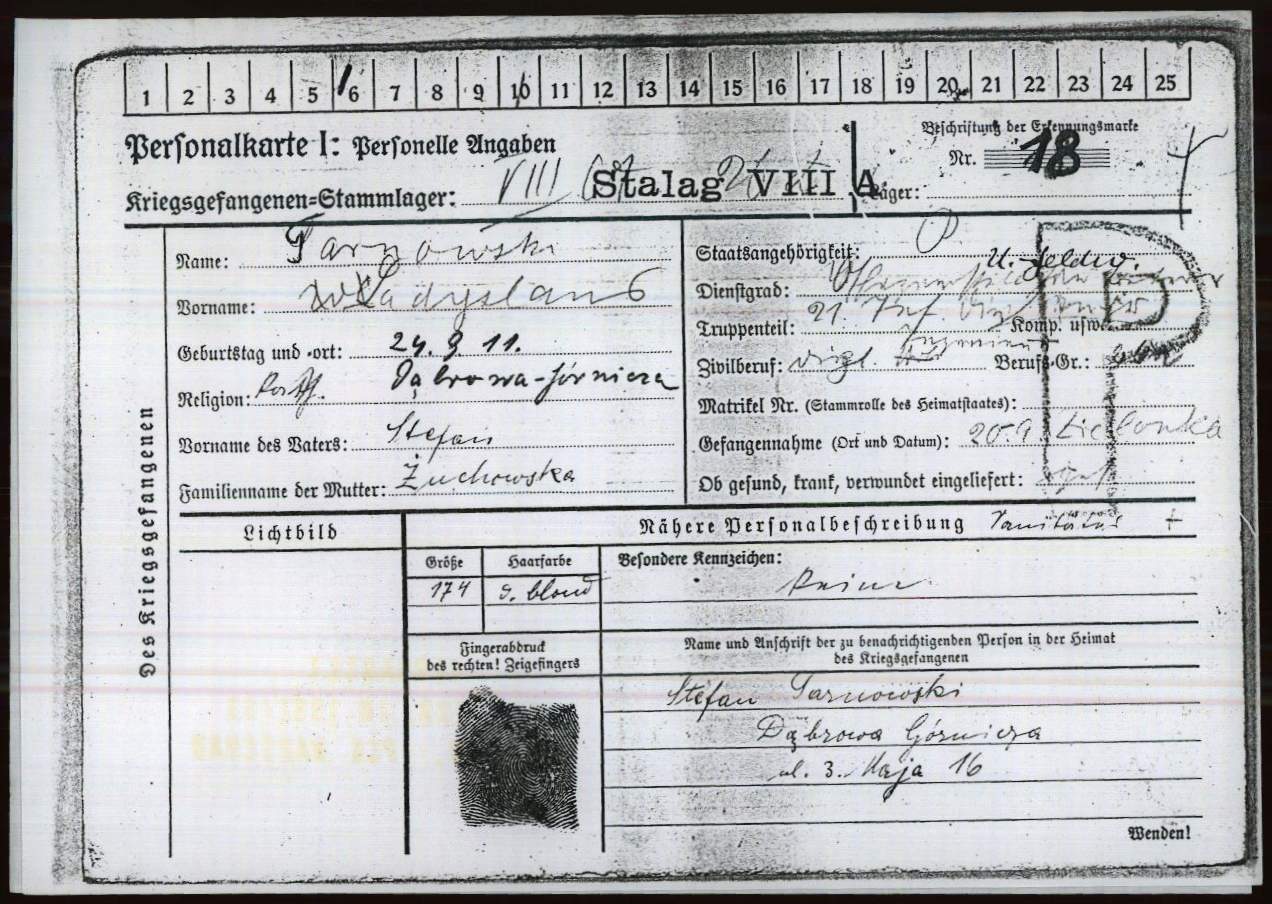 1 2 3 4 5 6 7 8 9 10 11 12 13 14 15 16 17 18 19 20 21 22 23 24 25
Personalkarte I: Personelle Angaben
Beschriftung der Erkennungsmarke
Nr. 18
Kriegsgefangenen-Stammlager: VIII Stalag VIII A Lager:
Des Kriegsgefangenen
Name: Tarnowski
Vorname: Władysław
Geburtstag und -ort: 24. 9. 11.
Dąbrowa-Górnicza
Religion:
Vorname des Vaters: Stefan
Familienname der Mutter: Żuchowska
Staatsangehörigkeit: P
U. Feldw.
Dienstgrad:
Truppenteil: 21. Inf. Komp. usw.
Zivilberuf: Ingenieur Berufs-Gr.:
Matrikel Nr. (Stammrolle des Heimatstaates):
Gefangennahme (Ort und Datum): 20.9.
Ob gesund, krank, verwundet eingeliefert:
P
Lichtbild
Nähere Personalbeschreibung Sanitäter +
Größe Haarfarbe Besondere Kennzeichen:
174 d. blond keine
Fingerabdruck
des rechten! Zeigefingers
Name und Anschrift der zu benachrichtigenden Person in der Heimat
des Kriegsgefangenen
Stefan Tarnowski
Dąbrowa Górnicza
ul. 3. Maja 16
Wenden!